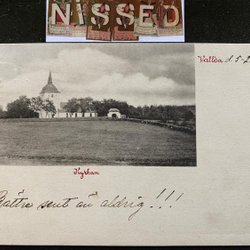 NISSED
Vallda d. 5-2
Kyrkan
Bättre sent än aldrig!!!